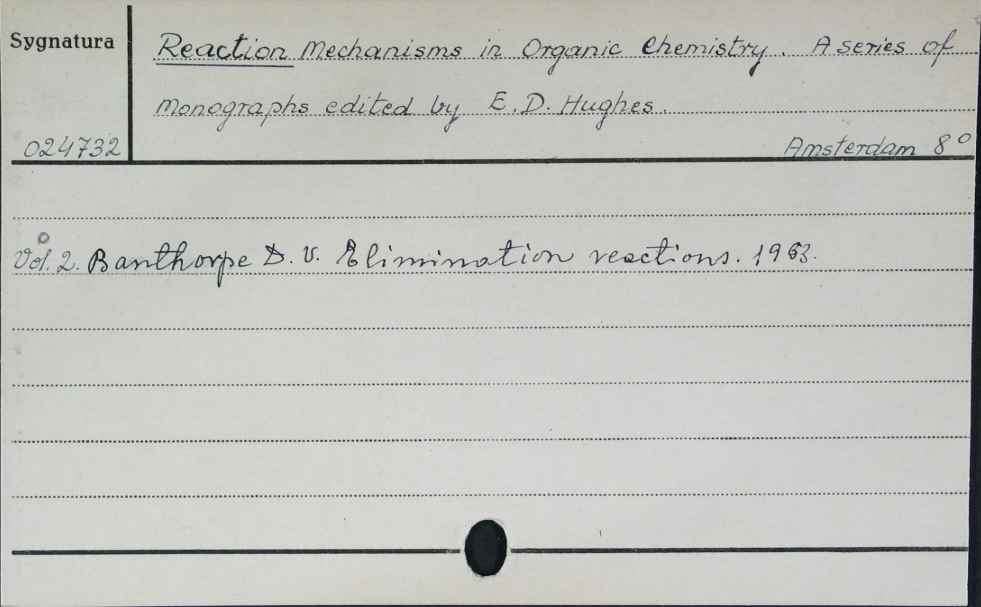 Sygnatura
Reaction Mechanisms in Organic Chemistry. A series of
Monographs edited by E.D. Hughes.
024732
Amsterdam 8°
Vol. 2. Banthorpe D. V. Elimination reactions. 1963.